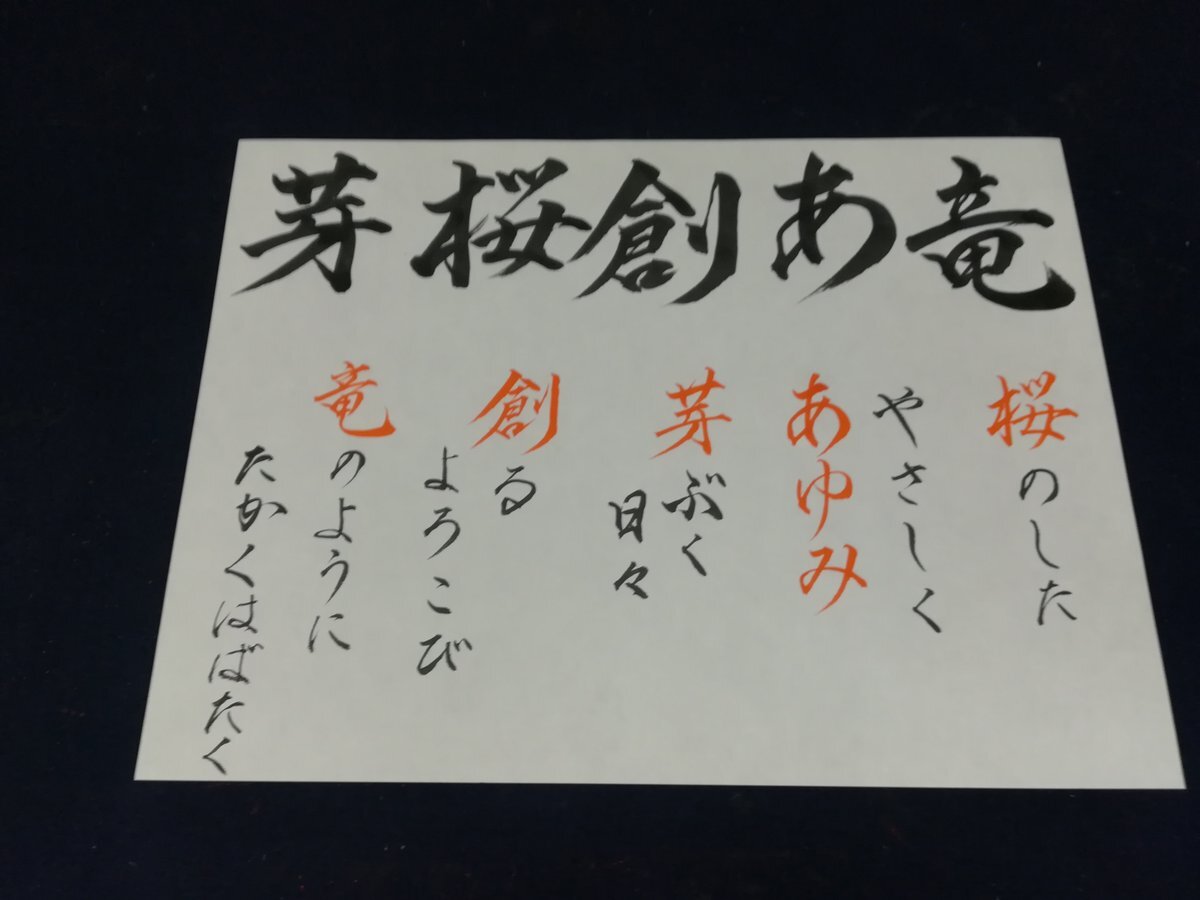 竜あ創桜芽
桜のした
やさしく
あゆみ
芽ぶく
日々
創る
よろこび
竜のように
たかくはばたく